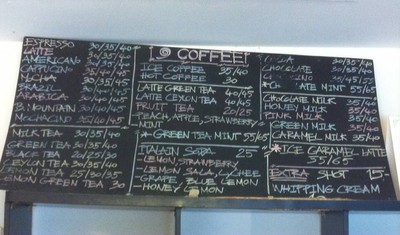 ESPRESSO 30/35/40
LATTE
AMERICANO 30/35/40
CAPUCINO 35/40/45
MOCHA 30/35/40
BRAZIL
B. MOUNTAIN
MOCHACINO
MILK TEA 30/35/40
GREEN TEA 30/35/40
BLACK TEA 20/25/30
LEMON TEA 30/35/40
LEMON GREEN TEA 30
COFFEE
ICE COFFEE 35/40
HOT COFFEE 30
LATTE GREEN TEA 40/45
LATTE LEMON TEA 40/45
FRUIT TEA 20/25
PEACH, APPLE, STRAWBERRY
MINT
*GREEN TEA MINT 55/65
ITALAIN SODA 25-
-LEMON, STRAWBERRY
-LEMON SALA, LYCHEE
-GRAPE BLUE LEMON
-HONEY LEMON
30/35/40
CHOCOLATE 30/35/40
MINT 55/65
CHOCOLATE MILK
HONEY MILK
PINK MILK
GREEN MILK
CARAMEL MILK
*ICE CARAMEL LATTE
55/65
EXTRA SHOT 15-
WHIPPING CREAM